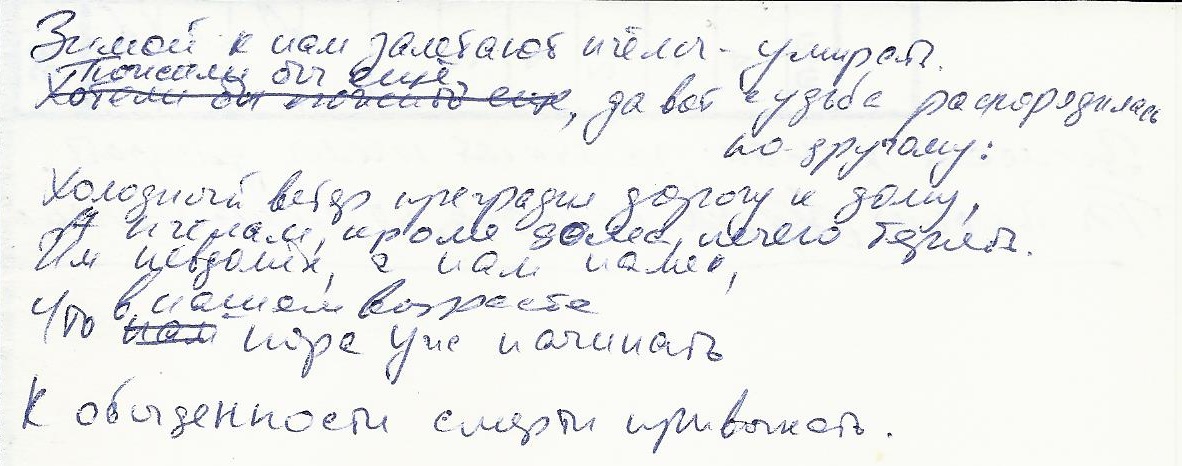 Зимой к нам залетают пчёлы - умирать.
Пожили бы ещё
Хотели бы пожить ещё, да вот судьба распорядилась
по-другому:
Холодный ветер преградил дорогу к дому,
А пчёлам, кроме дома, нечего терять.
Им невдомёк, а нам намёк,
в нашем возрасте
Что нам пора уже начинать
К обыденности смерти привыкать.